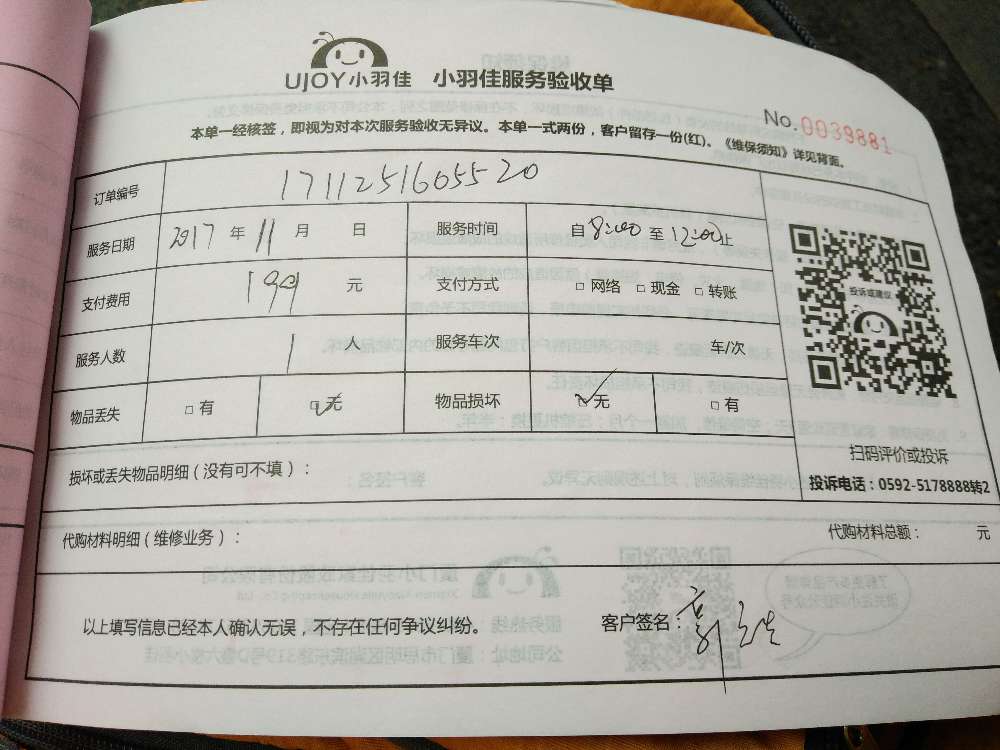 UJOY小羽佳 小羽佳服务验收单
No.0039881
本单一经核签，即视为对本次服务验收无异议。本单一式两份，客户留存一份(红)。《维保须知》详见背面。
订单编号 1711251605520
服务日期 2017 年 11 月 日 服务时间 自8:00 至 12:00止
支付费用 199 元 支付方式 □ 网络 □ 现金 □ 转账
服务人数 1 人 服务车次 车/次
物品丢失 □ 有 □ 无 物品损坏 □ 无 □ 有
投诉或建议
扫码评价或投诉
投诉电话：0592-5178888转2
损坏或丢失物品明细（没有可不填）：
代购材料明细（维修业务）： 代购材料总额： 元
以上填写信息已经本人确认无误，不存在任何争议纠纷。 客户签名：